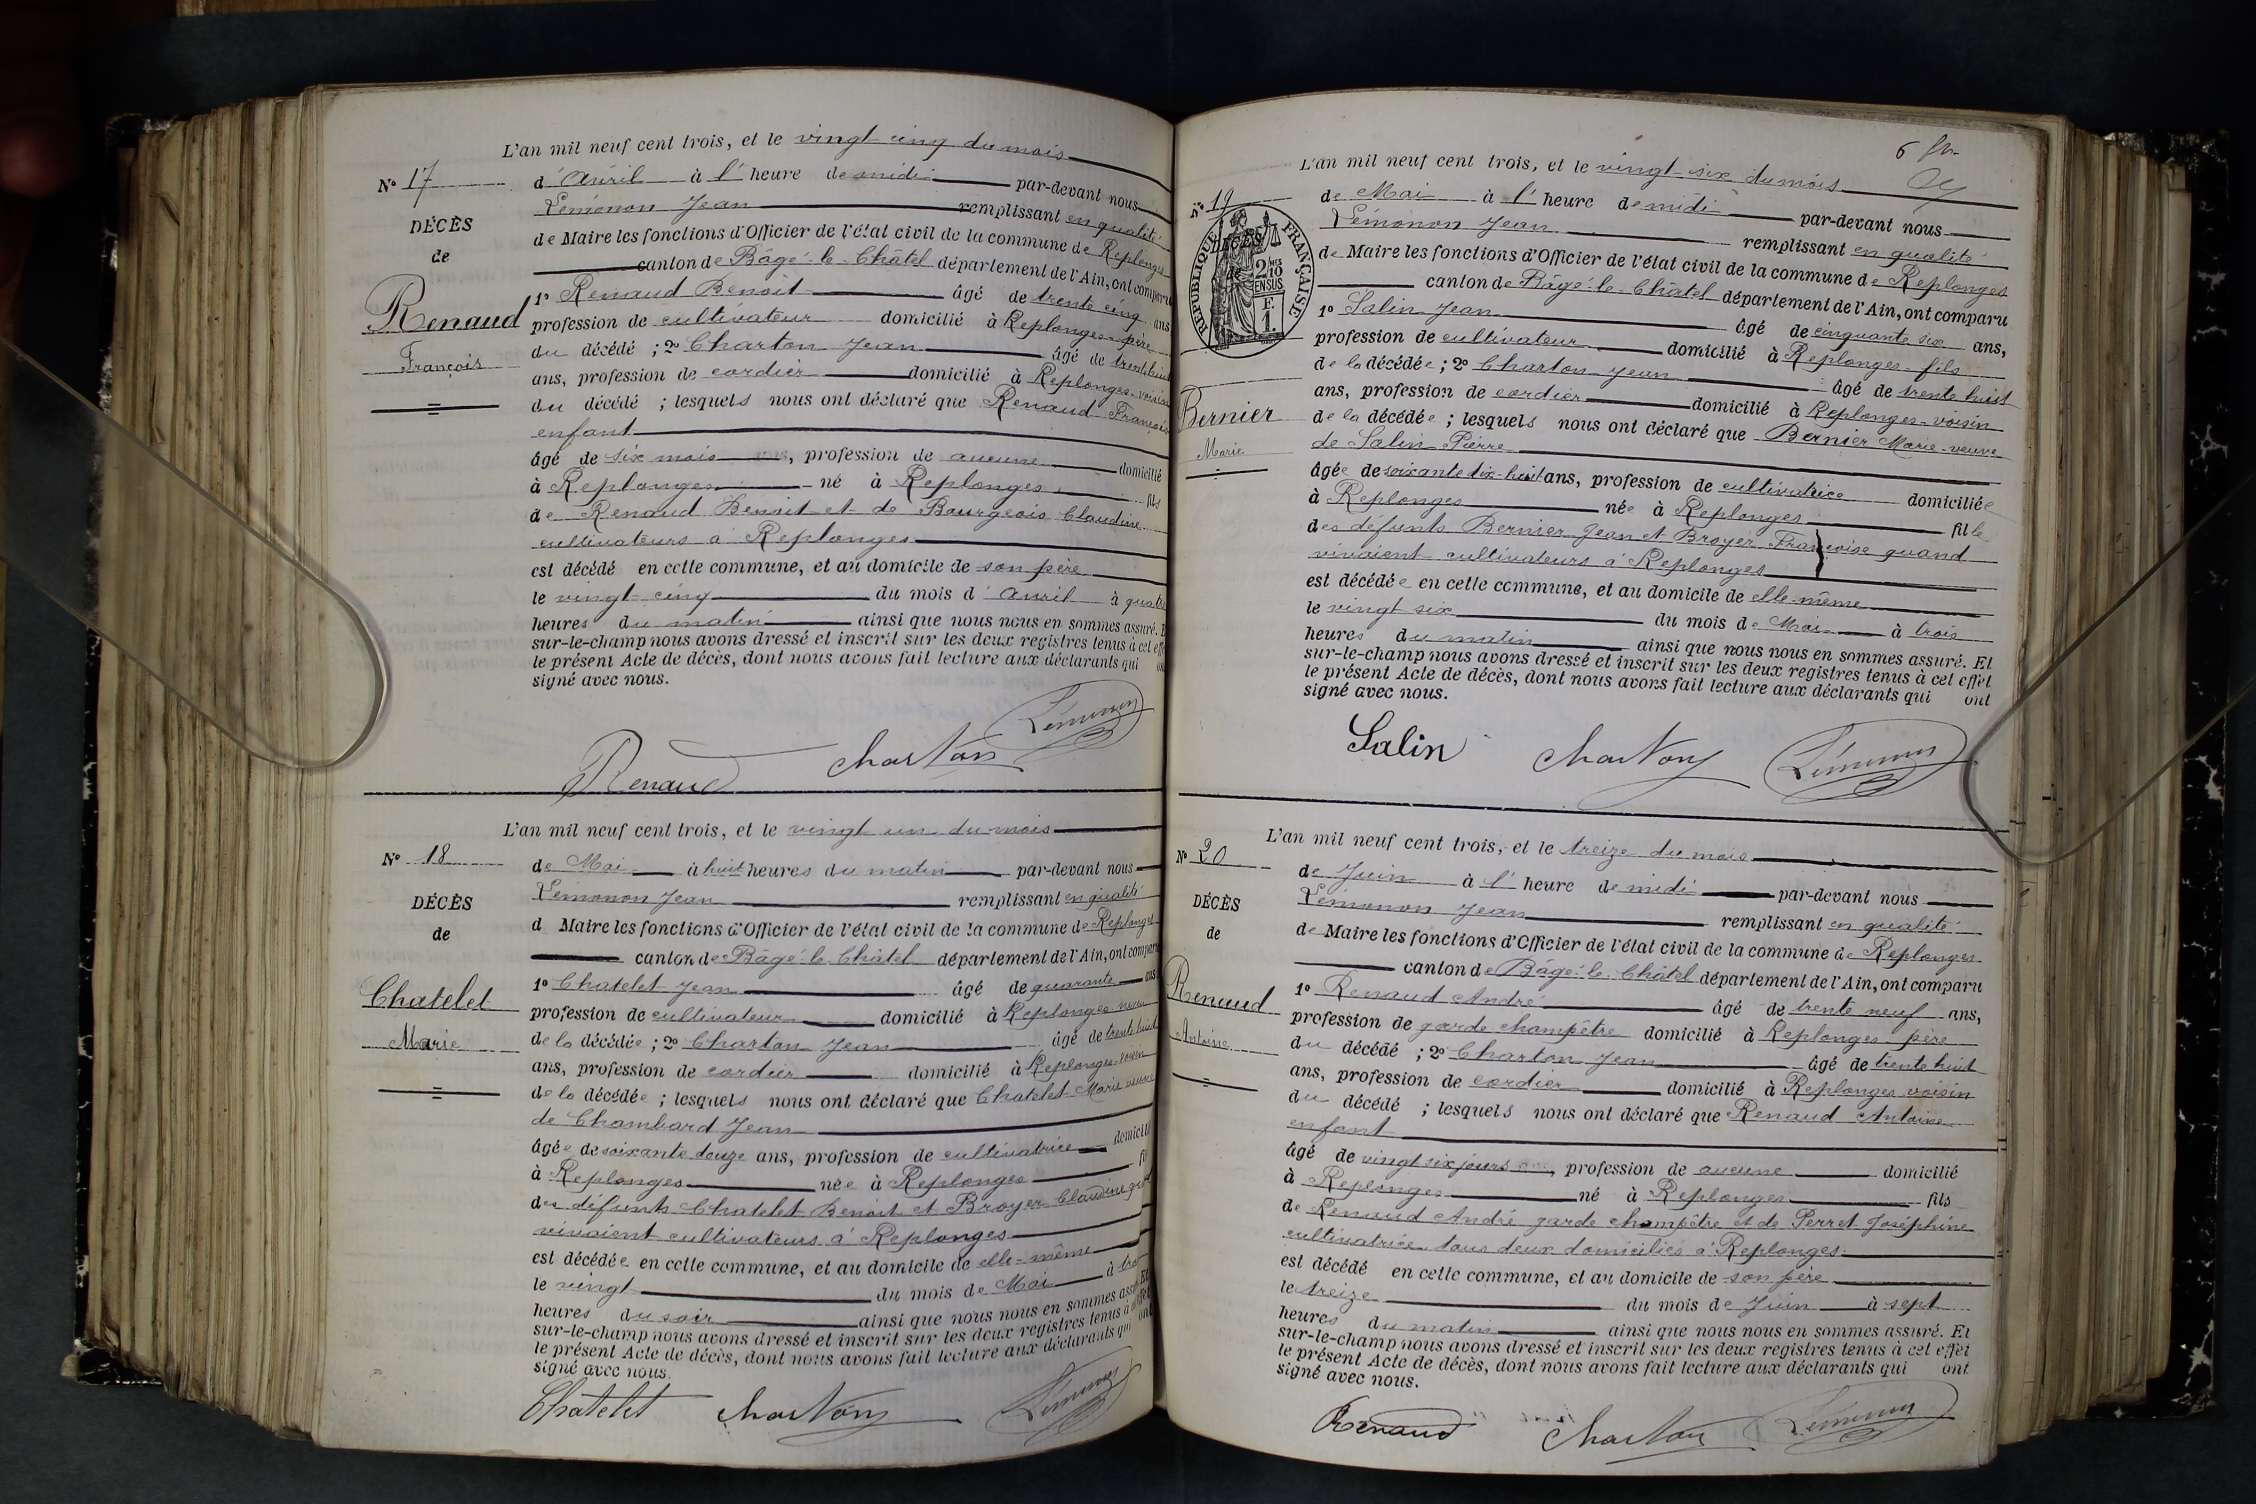 L'an mil neuf cent trois, et le vingt cinq du mois
N° 17
d'Avril à l'heure de midi par-devant nous
Lémonon Jean remplissant en qualité
DÉCÈS
de Maire les fonctions d'Officier de l'état civil de la commune de Replonges
de
canton de Bâgé-le-Châtel département de l'Ain, ont comparu
1° Renaud Benoit âgé de trente cinq ans
Renaud
profession de cultivateur domicilié à Replonges père
du décédé ; 2° Charton Jean âgé de trente huit
François
ans, profession de cordier domicilié à Replonges voisin
du décédé ; lesquels nous ont déclaré que Renaud François
enfant
âgé de six mois ans, profession de aucune domicilié
à Replonges né à Replonges fils
de Renaud Benoit et de Bourgeois Claudine
cultivateurs à Replonges
est décédé en cette commune, et au domicile de son père
le vingt cinq du mois d'avril à quatre
heures du matin ainsi que nous nous en sommes assuré. E
sur-le-champ nous avons dressé et inscrit sur les deux registres tenus à cet effe
le présent Acte de décès, dont nous avons fait lecture aux déclarants qui on
signé avec nous.
Renaud Charton Lémonon
L'an mil neuf cent trois, et le vingt un du mois
N° 18
de Mai à huit heures du matin par-devant nous
Lémonon Jean remplissant en qualité
DÉCÈS
d Maire les fonctions d'Officier de l'état civil de la commune de Replonges
de
canton de Bâgé-le-Châtel département de l'Ain, ont comparu
1° Chatelet Jean âgé de quarante ans
Chatelet
profession de cultivateur domicilié à Replonges neveu
Marie
de la décédée ; 2° Charton Jean âgé de trente huit
ans, profession de cordier domicilié à Replonges voisin
de la décédée ; lesquels nous ont déclaré que Chatelet Marie veuve
de Chambard Jean
âgée de soixante douze ans, profession de cultivatrice domicili
à Replonges née à Replonges fil
des défunts Chatelet Benoit et Broyer Claudine quand
vivaient cultivateurs à Replonges
est décédée en cette commune, et au domicile de elle-même
le vingt du mois de Mai à trois
heures du soir ainsi que nous nous en sommes assuré. Et
sur-le-champ nous avons dressé et inscrit sur les deux registres tenus à cet effet
le présent Acte de décès, dont nous avons fait lecture aux déclarants qui ont
signé avec nous.
Chatelet Charton Lémonon
6
L'an mil neuf cent trois, et le vingt-six du mois
N° 19
de Mai à l'heure de midi par-devant nous
Lémonon Jean remplissant en qualité
DÉCÈS
de
RÉPUBLIQUE FRANÇAISE
2/10 EN SUS
F.
1.
de Maire les fonctions d'Officier de l'état civil de la commune de Replonges
canton de Bâgé-le-Châtel département de l'Ain, ont comparu
1° Salin Jean âgé de cinquante six ans,
profession de cultivateur domicilié à Replonges fils
de la décédée ; 2° Charton Jean âgé de trente huit
Bernier
ans, profession de cordier domicilié à Replonges voisin
de la décédée ; lesquels nous ont déclaré que Bernier Marie veuve
Marie
de Salin Pierre
âgée de soixante dix-huit ans, profession de cultivatrice domiciliée
à Replonges née à Replonges fille
des défunts Bernier Jean et Broyer Françoise quand
vivaient cultivateurs à Replonges
est décédée en cette commune, et au domicile de elle-même
le vingt six du mois de Mai à trois
heures du matin ainsi que nous nous en sommes assuré. Et
sur-le-champ nous avons dressé et inscrit sur les deux registres tenus à cet effet
le présent Acte de décès, dont nous avons fait lecture aux déclarants qui ont
signé avec nous.
Salin Charton Lémonon
L'an mil neuf cent trois, et le treize du mois
N° 20
de Juin à l'heure de midi par-devant nous
Lémonon Jean remplissant en qualité
DÉCÈS
de Maire les fonctions d'Officier de l'état civil de la commune de Replonges
de
canton de Bâgé-le-Châtel département de l'Ain, ont comparu
Renaud
1° Renaud André âgé de trente neuf ans,
profession de garde champêtre domicilié à Replonges père
Antoine
du décédé ; 2° Charton Jean âgé de trente huit
ans, profession de cordier domicilié à Replonges voisin
du décédé ; lesquels nous ont déclaré que Renaud Antoine
enfant
âgé de vingt six jours ans, profession de aucune domicilié
à Replonges né à Replonges fils
de Renaud André garde champêtre et de Perret Joséphine
cultivatrice tous deux domiciliés à Replonges
est décédé en cette commune, et au domicile de son père
le treize du mois de Juin à sept
heures du matin ainsi que nous nous en sommes assuré. Et
sur-le-champ nous avons dressé et inscrit sur les deux registres tenus à cet effet
le présent Acte de décès, dont nous avons fait lecture aux déclarants qui ont
signé avec nous.
Renaud Charton Lémonon